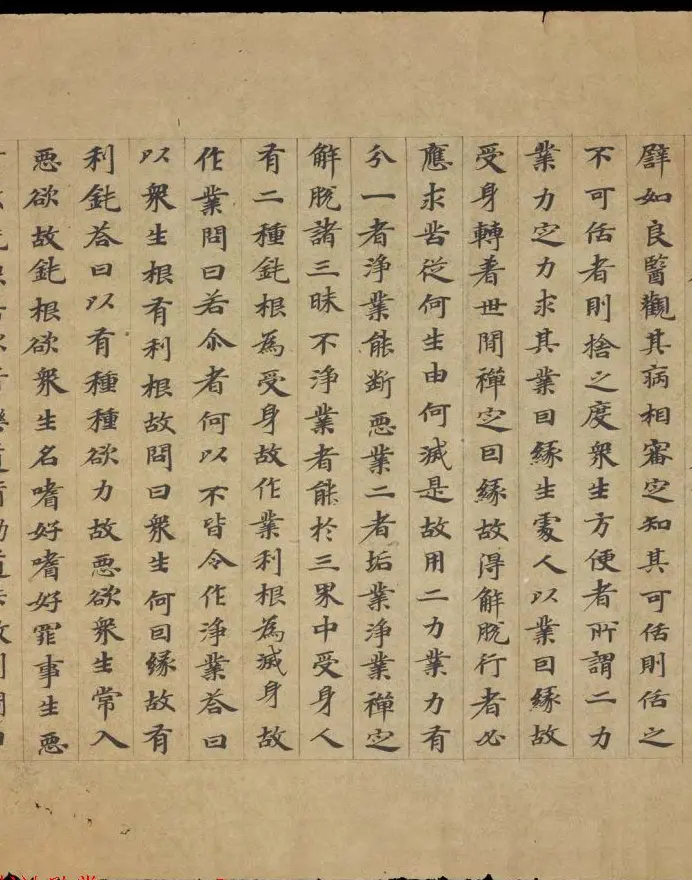 譬如良醫觀其病相審定知其可活則活之
不可活者則捨之度衆生方便者所謂二力
業力定力求其業因緣生處人以業因緣故
受身轉着世間禪定因緣故得解脫行者必
應求苦從何生由何滅是故用二力業力有
分一者淨業能断惡業二者垢業淨業禪定
解脫諸三昧不淨業者能於三界中受身人
有二種鈍根為受身故作業利根為滅身故
作業問曰若尒者何以不皆令作淨業荅曰
以衆生根有利根故問曰衆生何因緣故有
利鈍荅曰以有種種欲力故惡欲衆生常入
惡欲故鈍根欲衆生名嗜好嗜好罪事生惡